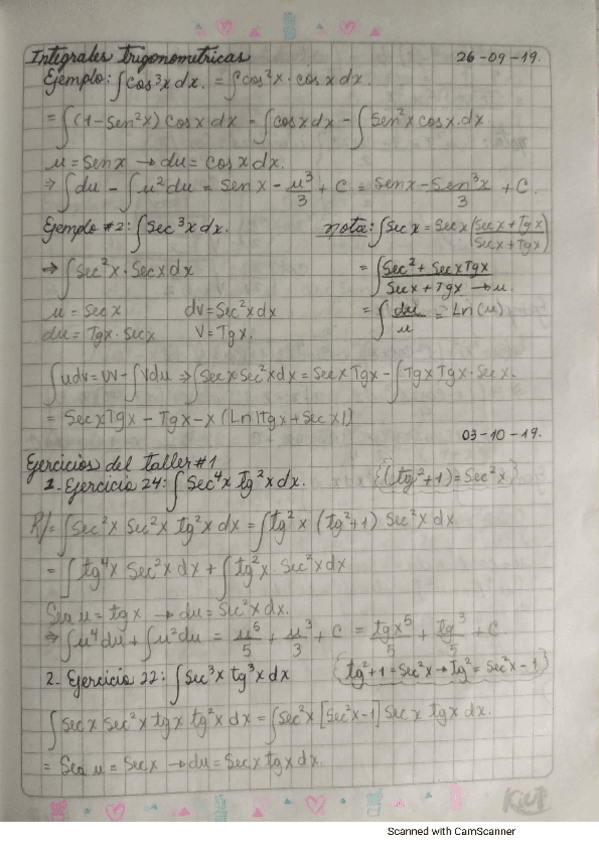 Integrales trigonometricas 26-09-19.
Ejemplo: ∫cos³x dx. = ∫cos²x · cos x dx.
= ∫(1-Sen²x) Cos x dx = ∫cos x dx - ∫Sen²x cos x.dx
u = Sen x → du = Cos x dx.
⇒ ∫du - ∫u²du = Sen x - u³/3 + C = Sen x - Sen³x/3 + C.
Ejemplo #2: ∫Sec³x dx. nota: ∫Sec x = Sec x (Sec x + Tg x / Sec x + Tg x)
→ ∫Sec²x · Sec x dx = ∫ Sec² + Sec x Tg x / Sec x + Tg x → u.
u = Sec x dv = Sec²x dx = ∫ du/u = Ln(u)
du = Tg x · Sec x V = Tg x.
∫udv = UV - ∫Vdu ⇒ ∫Sec x Sec²x dx = Sec x Tg x - ∫Tg x Tg x · Sec x.
= Sec x Tg x - Tg x - x (Ln |tg x + Sec x|)
03-10-19.
Ejercicios del taller #1
1. Ejercicio 24: ∫Sec⁴x Tg²x dx. {(tg²+1) = Sec²x}
R/= ∫Sec²x Sec²x tg²x dx = ∫tg²x (tg²+1) Sec²x dx
= ∫tg⁴x Sec²x dx + ∫tg²x Sec²x dx
Sea u = tg x → du = Sec²x dx.
⇒ ∫u⁴du + ∫u²du = u⁵/5 + u³/3 + C = tgx⁵/5 + tg³/5 + C
2. Ejercicio 22: ∫Sec³x tg³x dx {tg²+1 = Sec²x → Tg² = Sec²x - 1}
∫Sec x Sec²x tg x tg²x dx = ∫Sec²x [Sec²x-1] Sec x tg x dx.
= Sea u = Sec x → du = Sec x tg x dx.
Scanned with CamScanner